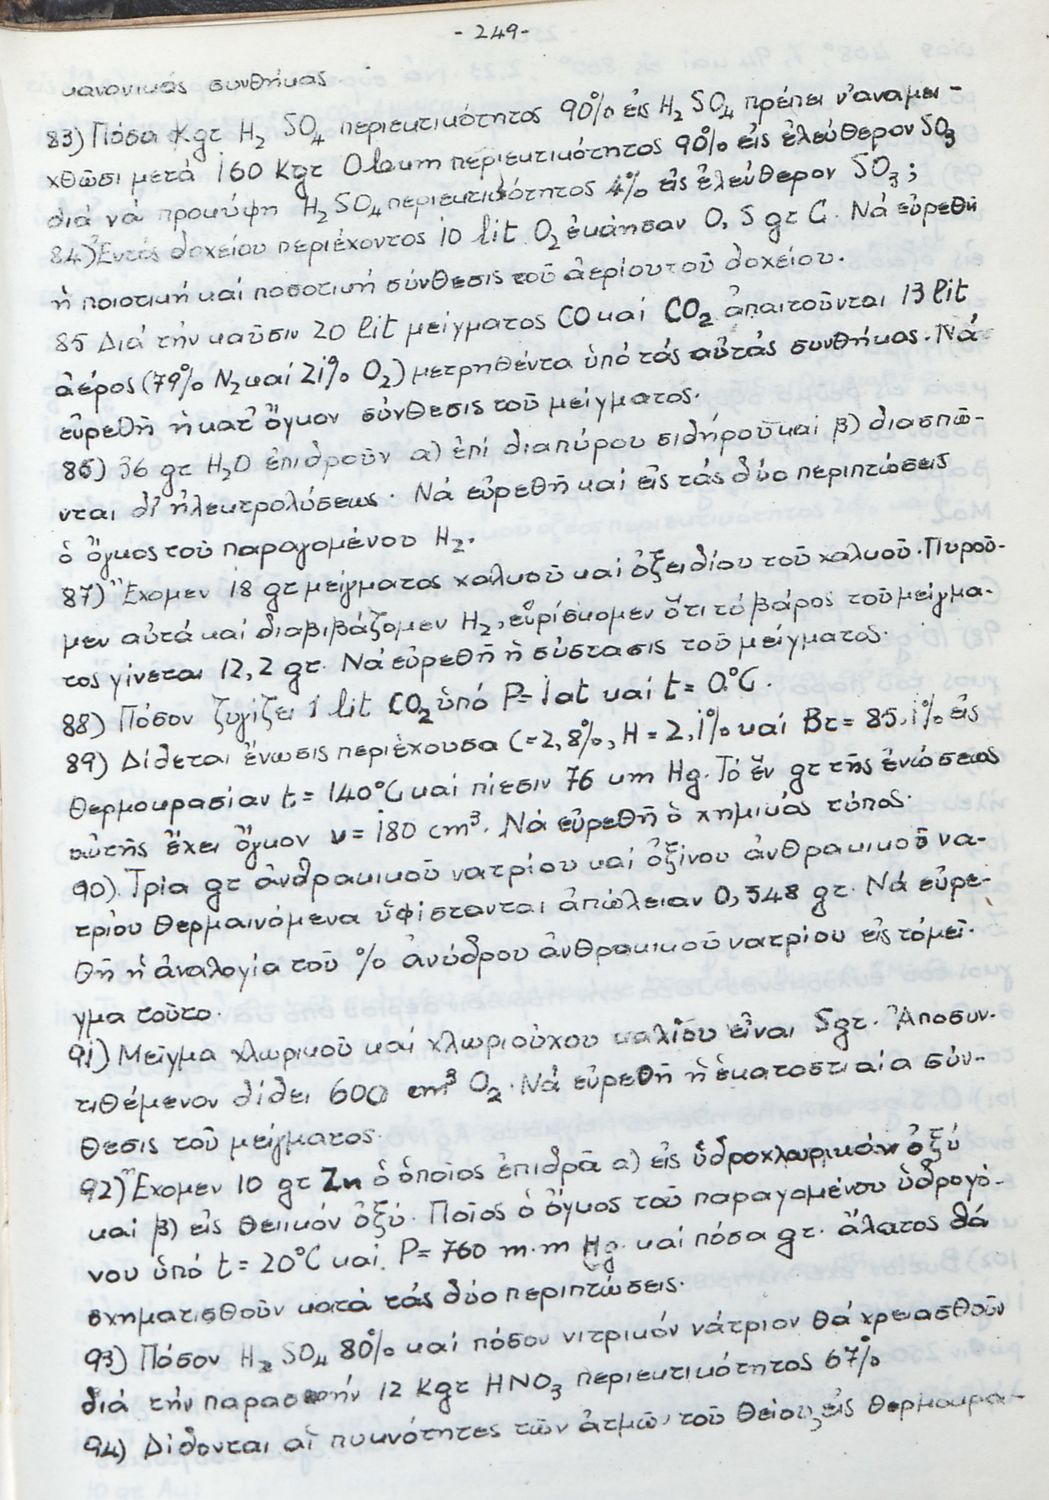 - 249 -
κανονικάς συνθήκας
83) Πόσα Kgτ H₂ SO₄ περιεκτικότητος 90% εἰς H₂ SO₄ πρέπει ν'αναμει-
χθῶσι μετά 160 Kgτ Oleum περιεκτικότητος 90% εἰς ἐλεύθερον SO₃
διά νά προκύψη H₂SO₄ περιεκτικότητος 4% εἰς ἐλεύθερον SO₃;
84) Ἐντός δοχείου περιέχοντος 10 lit O₂ ἐκάησαν 0,5 gτ C. Νά εὑρεθῆ
ἡ ποιοτική καί ποσοτική σύνθεσις τοῦ ἀερίου τοῦ δοχείου.
85 Διά τήν καῦσιν 20 lit μείγματος CO καί CO₂ ἀπαιτοῦνται 13 lit
ἀέρος (79% N₂ καί 21% O₂) μετρηθέντα ὑπό τάς αὐτάς συνθήκας. Νά
εὑρεθῆ ἡ κατ' ὄγκον σύνθεσις τοῦ μείγματος.
86) 36 gτ H₂O ἐπιδροῦν α) ἐπί διαπύρου σιδήρου καί β) διασπῶ-
νται δι' ἠλεκτρολύσεως. Νά εὑρεθῆ καί εἰς τάς δύο περιπτώσεις
ὁ ὄγκος τοῦ παραγομένου H₂.
87) Ἔχομεν 18 gτ μείγματος χαλκοῦ καί ὀξειδίου τοῦ χαλκοῦ. Πυροῦ-
μεν αὐτά καί διαβιβάζομεν H₂, εὑρίσκομεν ὅτι τό βάρος τοῦ μείγμα-
τος γίνεται 12,2 gτ. Νά εὑρεθῆ ἡ σύστασις τοῦ μείγματος.
88) Πόσον ζυγίζει 1 lit CO₂ ὑπό P= 1at καί t= 0°C.
89) Δίδεται ἕνωσις περιέχουσα C=2,8%, H=2,1% καί Br= 85,1% εἰς
θερμοκρασίαν t= 140°C καί πίεσιν 76 cm Hg. Τό ἕν gτ τῆς ἑνώσεως
αὐτῆς ἔχει ὄγκον v= 180 cm³. Νά εὑρεθῆ ὁ χημικός τύπος.
90). Τρία gτ ἀνθρακικοῦ νατρίου καί ὀξίνου ἀνθρακικοῦ να-
τρίου θερμαινόμενα ὑφίστανται ἀπώλειαν 0,348 gτ. Νά εὑρε-
θῆ ἡ ἀναλογία τοῦ % ἀνύδρου ἀνθρακικοῦ νατρίου εἰς τό μεῖ-
γμα τοῦτο.
91) Μεῖγμα χλωρικοῦ καί χλωριούχου καλίου εἶναι 5gτ. Ἀποσυν-
τιθέμενον δίδει 600 cm³ O₂. Νά εὑρεθῆ ἡ ἑκατοστιαία σύν-
θεσις τοῦ μείγματος.
92) Ἔχομεν 10 gτ Zn ὁ ὁποῖος ἐπιδρᾶ α) εἰς ὑδροχλωρικόν ὀξύ
καί β) εἰς θειικόν ὀξύ. Ποῖος ὁ ὄγκος τοῦ παραγομένου ὑδρογό-
νου ὑπό t= 20°C καί P= 760 m.m Hg. καί πόσα gτ. ἅλατος θά
σχηματισθοῦν κατά τάς δύο περιπτώσεις.
93) Πόσον H₂ SO₄ 80% καί πόσον νιτρικόν νάτριον θά χρειασθοῦν
διά τήν παρασκευήν 12 Kgτ HNO₃ περιεκτικότητος 67%
94) Δίδονται αἱ πυκνότητες τῶν ἀτμῶν τοῦ θείου εἰς θερμοκρα-